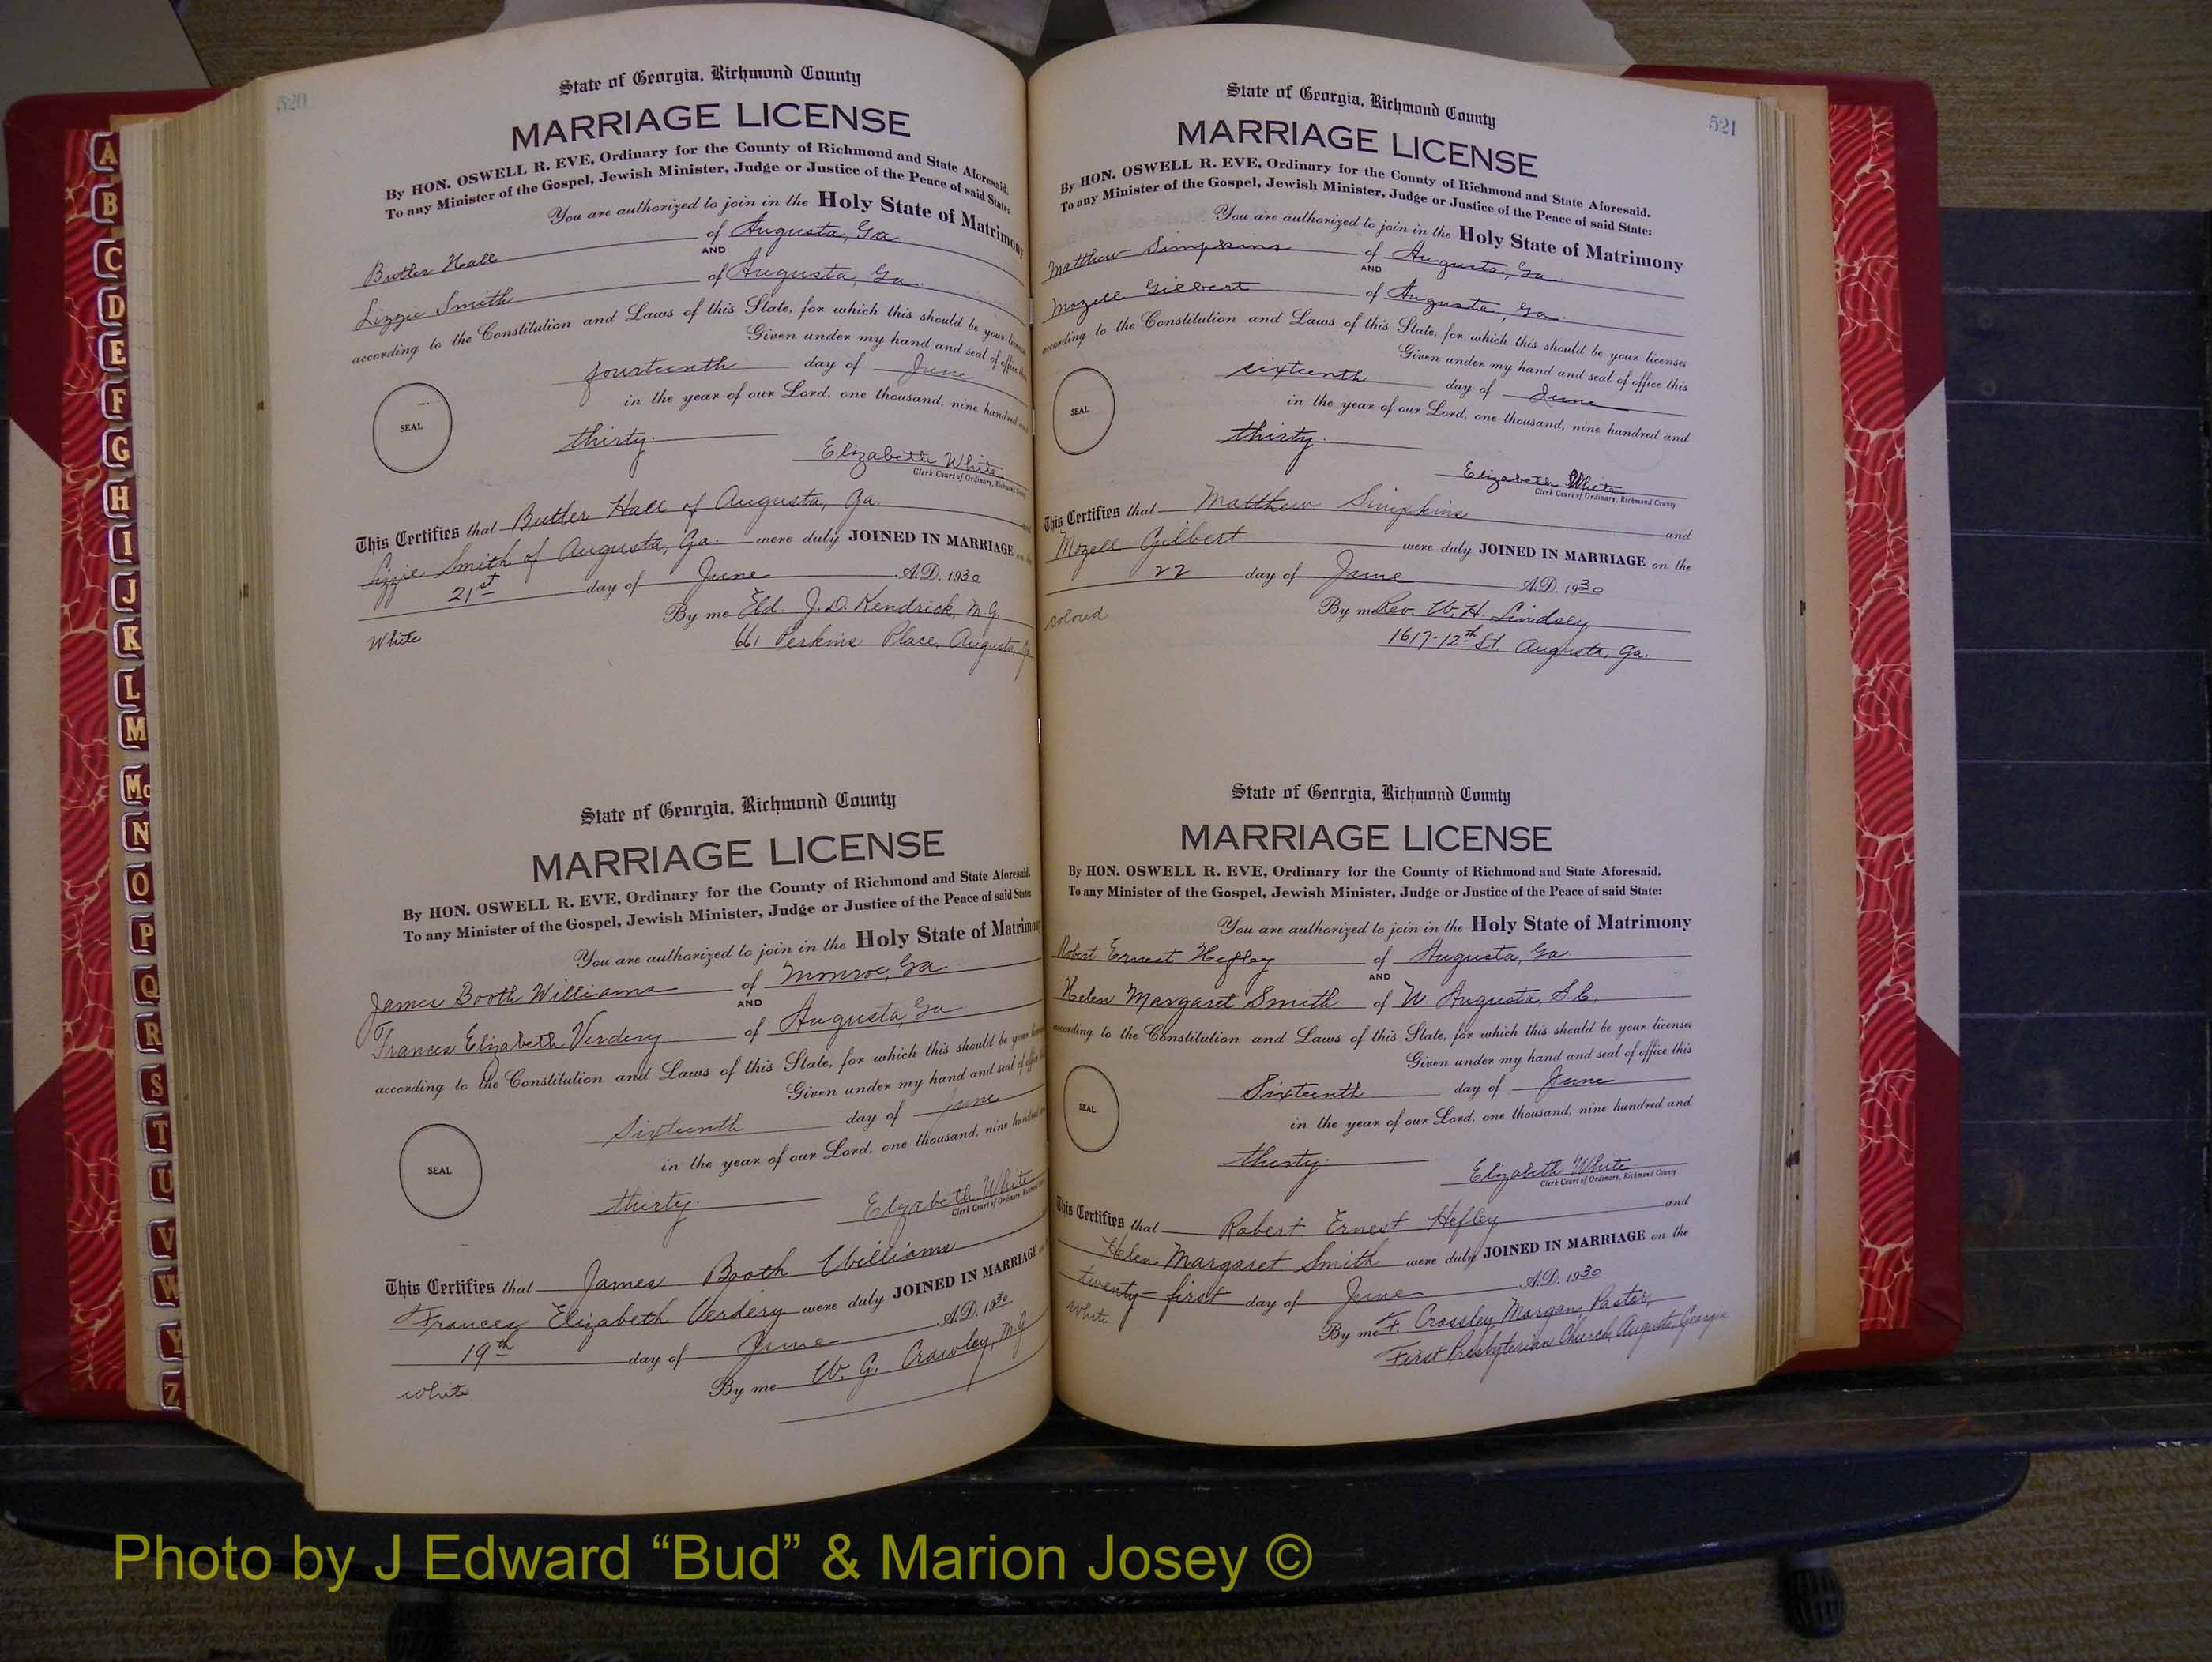 A
B
C
D
E
F
G
H
I
J
K
L
M
Mc
N
O
P
Q
R
S
T
U
V
W
Y
Z
520
State of Georgia, Richmond County
MARRIAGE LICENSE
By HON. OSWELL R. EVE, Ordinary for the County of Richmond and State Aforesaid.
To any Minister of the Gospel, Jewish Minister, Judge or Justice of the Peace of said State:
You are authorized to join in the Holy State of Matrimony
Butler Hall of Augusta, Ga.
AND
Lizzie Smith of Augusta, Ga.
according to the Constitution and Laws of this State, for which this should be your
Given under my hand and seal of office
fourteenth day of June
in the year of our Lord, one thousand, nine hundred
SEAL
thirty.
Elizabeth White
Clerk Court of Ordinary, Richmond County
This Certifies that Butler Hall of Augusta, Ga.
Lizzie Smith of Augusta, Ga. were duly JOINED IN MARRIAGE
21st day of June A.D. 1930
By me Eld. J. D. Kendrick, M.G.
White
661 Perkins Place, Augusta,
State of Georgia, Richmond County
MARRIAGE LICENSE
By HON. OSWELL R. EVE, Ordinary for the County of Richmond and State Aforesaid.
To any Minister of the Gospel, Jewish Minister, Judge or Justice of the Peace of said State:
You are authorized to join in the Holy State of Matrimony
James Booth Williams of Monroe, Ga
AND
Frances Elizabeth Verdery of Augusta, Ga
according to the Constitution and Laws of this State, for which this should be your
Given under my hand and seal of
Sixteenth day of June
SEAL
in the year of our Lord, one thousand, nine hundred
thirty.
Elizabeth White
Clerk Court of Ordinary, Richmond
This Certifies that James Booth Williams
Frances Elizabeth Verdery were duly JOINED IN MARRIAGE
19th day of June A.D. 1930
white
By me W. G. Crawley, M G
521
State of Georgia, Richmond County
MARRIAGE LICENSE
By HON. OSWELL R. EVE, Ordinary for the County of Richmond and State Aforesaid.
To any Minister of the Gospel, Jewish Minister, Judge or Justice of the Peace of said State:
You are authorized to join in the Holy State of Matrimony
Matthew Simpkins of Augusta, Ga.
AND
Mozell Gilbert of Augusta, Ga.
according to the Constitution and Laws of this State, for which this should be your licenses
Given under my hand and seal of office this
sixteenth day of June
SEAL
in the year of our Lord, one thousand, nine hundred and
thirty.
Elizabeth White
Clerk Court of Ordinary, Richmond County
This Certifies that Matthew Simpkins and
Mozell Gilbert were duly JOINED IN MARRIAGE on the
22 day of June A.D. 1930
colored
By me Rev. W. H. Lindsey
1617-12th St. Augusta, Ga.
State of Georgia, Richmond County
MARRIAGE LICENSE
By HON. OSWELL R. EVE, Ordinary for the County of Richmond and State Aforesaid.
To any Minister of the Gospel, Jewish Minister, Judge or Justice of the Peace of said State:
You are authorized to join in the Holy State of Matrimony
Robert Ernest Hefley of Augusta, Ga.
AND
Helen Margaret Smith of W Augusta, S.C.
according to the Constitution and Laws of this State, for which this should be your licenses
Given under my hand and seal of office this
Sixteenth day of June
SEAL
in the year of our Lord, one thousand, nine hundred and
thirty.
Elizabeth White
Clerk Court of Ordinary, Richmond County
This Certifies that Robert Ernest Hefley and
Helen Margaret Smith were duly JOINED IN MARRIAGE on the
twenty-first day of June A.D. 1930
white
By me F. Crossley Morgan, Pastor,
First Presbyterian Church, Augusta, Georgia
Photo by J Edward “Bud” & Marion Josey ©